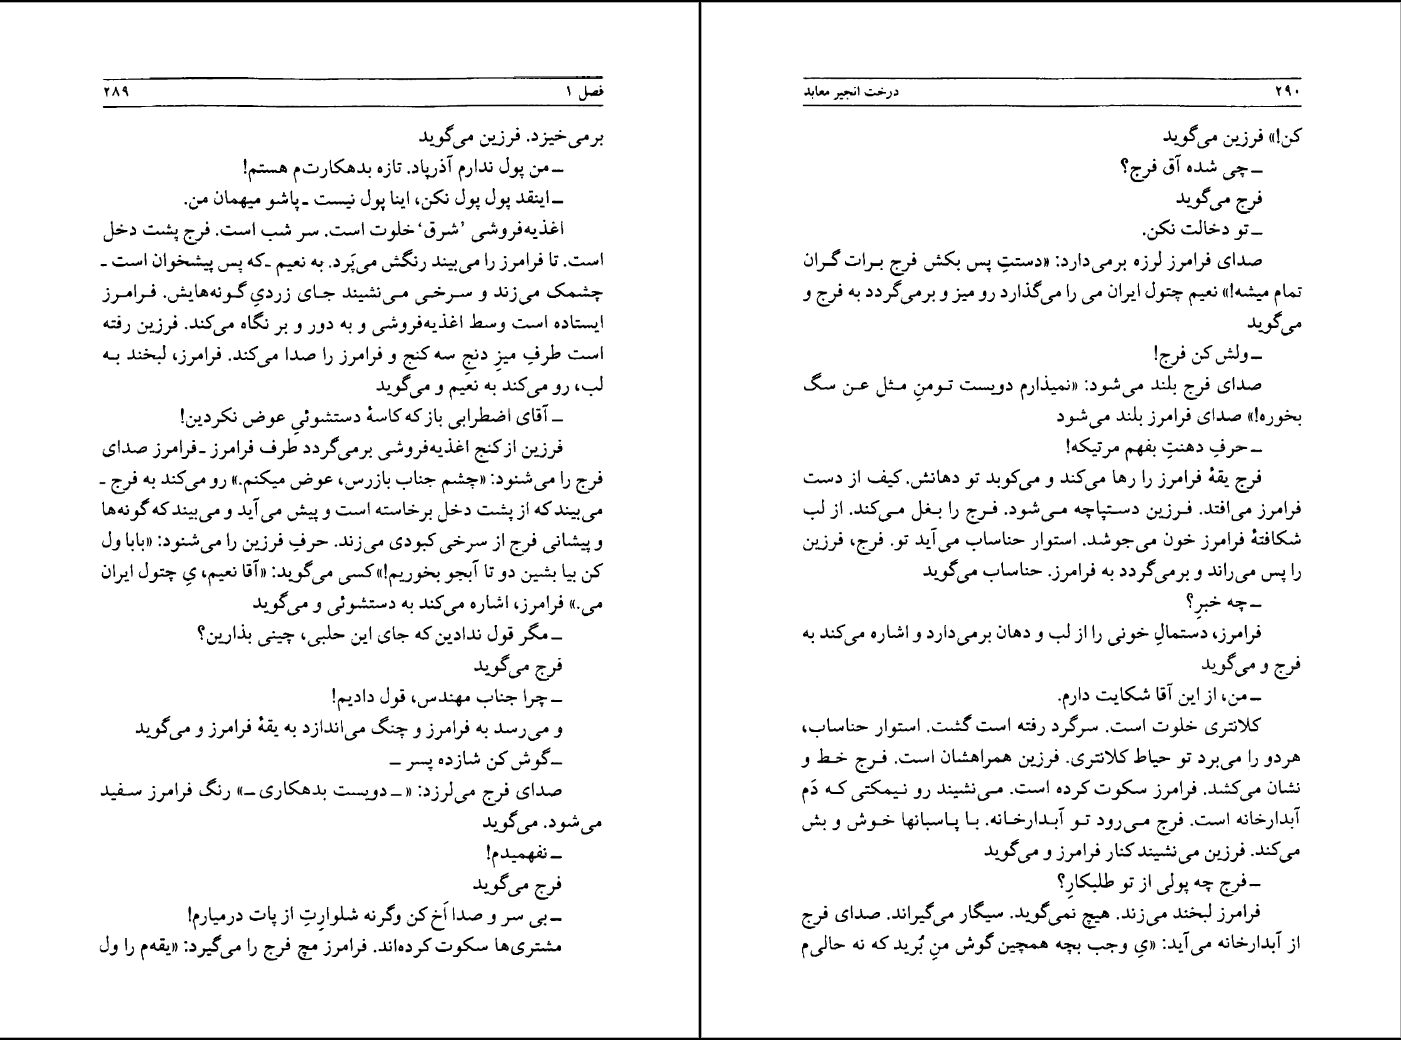 فصل ۱ ۲۸۹
برمی‌خیزد. فرزین می‌گوید
ـ من پول ندارم آذرپاد. تازه بدهکارت‌م هستم!
ـ اینقد پول پول نکن، اینا پول نیست ـ پاشو میهمان من.
اغذیه‌فروشی ’شرق‘ خلوت است. سر شب است. فرج پشت دخل
است. تا فرامرز را می‌بیند رنگش می‌پَرد. به نعیم ـ که پس پیشخوان است ـ
چشمک می‌زند و سرخی می‌نشیند جای زردیِ گونه‌هایش. فرامرز
ایستاده است وسط اغذیه‌فروشی و به دور و بر نگاه می‌کند. فرزین رفته
است طرفِ میزِ دنجِ سه کنج و فرامرز را صدا می‌کند. فرامرز، لبخند به
لب، رو می‌کند به نعیم و می‌گوید
ـ آقای اضطرابی باز که کاسهٔ دستشوئیِ عوض نکردین!
فرزین از کنج اغذیه‌فروشی برمی‌گردد طرف فرامرز ـ فرامرز صدای
فرج را می‌شنود: «چشم جناب بازرس، عوض میکنم.» رو می‌کند به فرج ـ
می‌بیند که از پشت دخل برخاسته است و پیش می‌آید و می‌بیند که گونه‌ها
و پیشانی فرج از سرخی کبودی می‌زند. حرفِ فرزین را می‌شنود: «بابا ول
کن بیا بشین دو تا آبجو بخوریم!» کسی می‌گوید: «آقا نعیم، یِ چتول ایران
می.» فرامرز، اشاره می‌کند به دستشوئی و می‌گوید
ـ مگر قول ندادین که جای این حلبی، چینی بذارین؟
فرج می‌گوید
ـ چرا جناب مهندس، قول دادیم!
و می‌رسد به فرامرز و چنگ می‌اندازد به یقهٔ فرامرز و می‌گوید
ـ گوش کن شازده پسر ـ
صدای فرج می‌لرزد: «ـ دویست بدهکاری ـ» رنگ فرامرز سفید
می‌شود. می‌گوید
ـ نفهمیدم!
فرج می‌گوید
ـ بی سر و صدا اَخ کن وگرنه شلوارتِ از پات درمیارم!
مشتری‌ها سکوت کرده‌اند. فرامرز مچ فرج را می‌گیرد: «یقه‌م را ول
۲۹۰ درخت انجیر معابد
کن!» فرزین می‌گوید
ـ چی شده آق فرج؟
فرج می‌گوید
ـ تو دخالت نکن.
صدای فرامرز لرزه برمی‌دارد: «دستتِ پس بکش فرج برات گران
تمام میشه!» نعیم چتول ایران می را می‌گذارد رو میز و برمی‌گردد به فرج و
می‌گوید
ـ ولش کن فرج!
صدای فرج بلند می‌شود: «نمیذارم دویست تومنِ مثل عن سگ
بخوره!» صدای فرامرز بلند می‌شود
ـ حرفِ دهنتِ بفهم مرتیکه!
فرج یقهٔ فرامرز را رها می‌کند و می‌کوبد تو دهانش. کیف از دست
فرامرز می‌افتد. فرزین دستپاچه می‌شود. فرج را بغل می‌کند. از لب
شکافتهٔ فرامرز خون می‌جوشد. استوار حناساب می‌آید تو. فرج، فرزین
را پس می‌راند و برمی‌گردد به فرامرز. حناساب می‌گوید
ـ چه خبرِ؟
فرامرز، دستمالِ خونی را از لب و دهان برمی‌دارد و اشاره می‌کند به
فرج و می‌گوید
ـ من، از این آقا شکایت دارم.
کلانتری خلوت است. سرگرد رفته است گشت. استوار حناساب،
هردو را می‌برد تو حیاط کلانتری. فرزین همراهشان است. فرج خط و
نشان می‌کشد. فرامرز سکوت کرده است. می‌نشیند رو نیمکتی که دَم
آبدارخانه است. فرج می‌رود تو آبدارخانه. با پاسبانها خوش و بش
می‌کند. فرزین می‌نشیند کنار فرامرز و می‌گوید
ـ فرج چه پولی از تو طلبکارِ؟
فرامرز لبخند می‌زند. هیچ نمی‌گوید. سیگار می‌گیراند. صدای فرج
از آبدارخانه می‌آید: «یِ وجب بچه همچین گوش منِ بُرید که نه حالی‌م